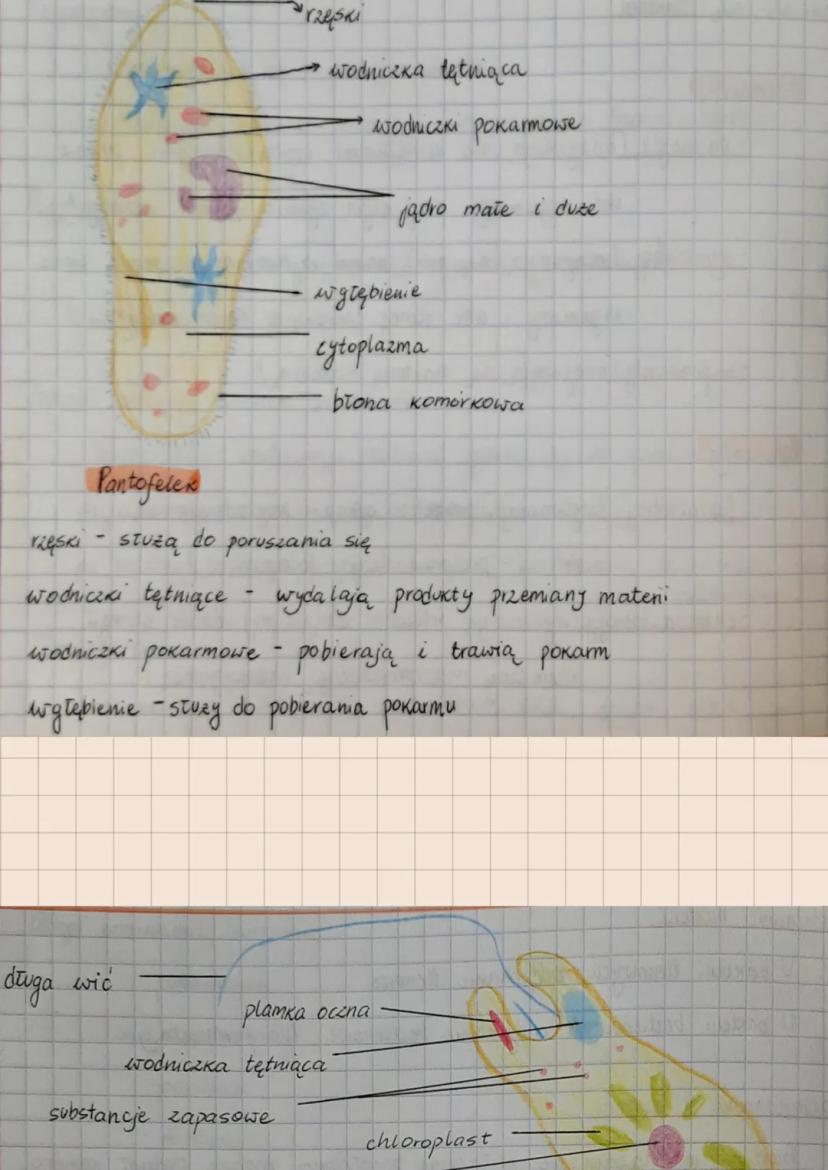 rzęski
wodniczka tętniąca
wodniczki pokarmowe
jądro małe i duże
wgłębienie
cytoplazma
błona komórkowa
Pantofelek
rzęski - służą do poruszania się
wodniczki tętniące - wydalają produkty przemiany materii
wodniczki pokarmowe - pobierają i trawią pokarm
wgłębienie - służy do pobierania pokarmu
długa wić
plamka oczna
wodniczka tętniąca
substancje zapasowe
chloroplast